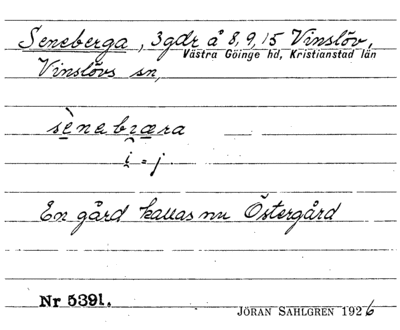 Seneberga, 3 gdr å 8, 9, 15 Vinslöv,
Västra Göinge hd, Kristianstad län
Vinslövs sn,
sènebræra
i̯ = j.
En gård kallas nu Östergård
Nr 5391.
JÖRAN SAHLGREN 1926